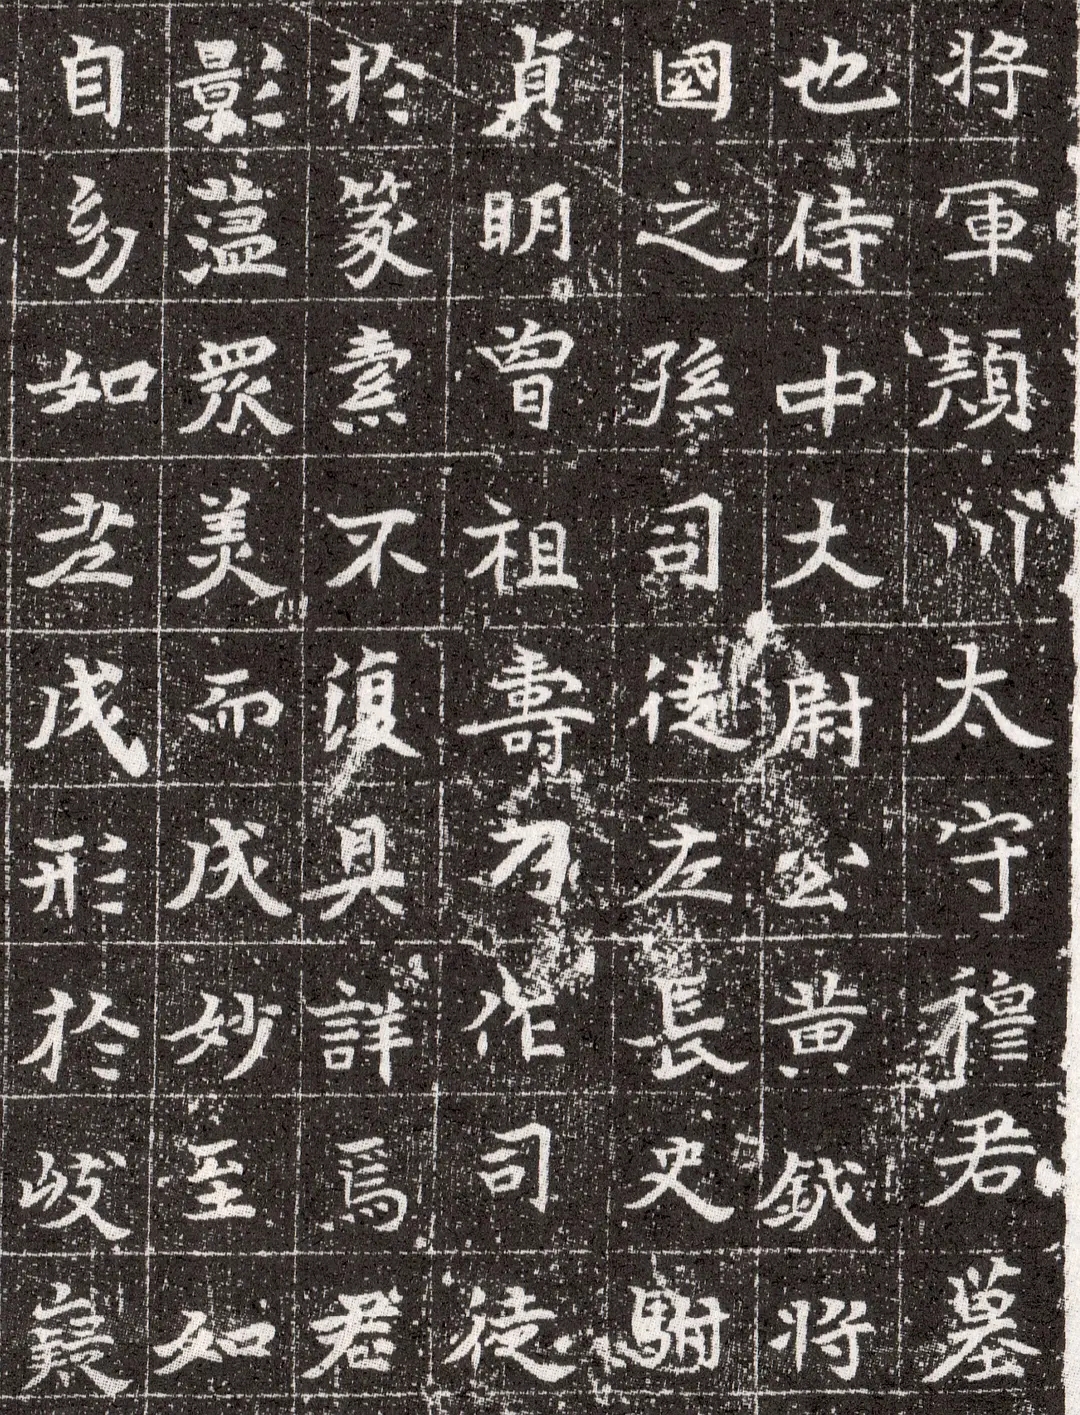 將軍頴川太守穆君墓
也侍中大尉公黃鉞將
國之孫司徒左長史駙
貞明曾祖壽作司徒
於篆素不復具詳焉君
影蘊眾美而成妙至如
自幼如成形於岐嶷